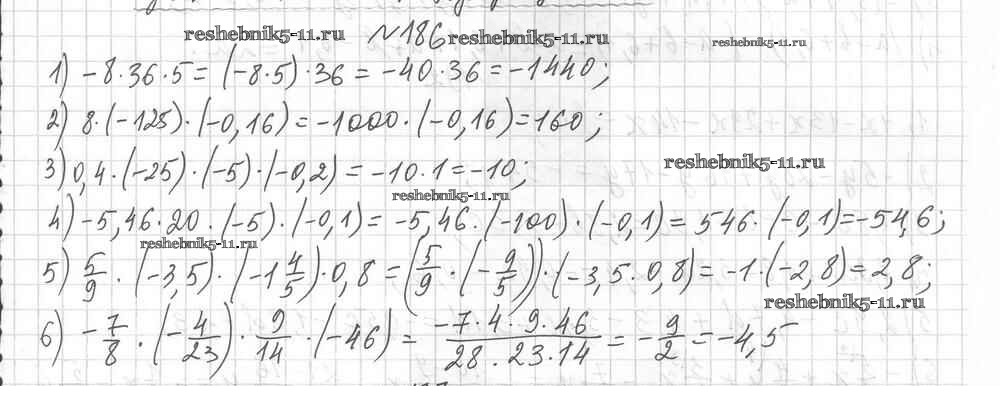 reshebnik5-11.ru №186 reshebnik5-11.ru reshebnik5-11.ru
1) -8·36·5 = (-8·5)·36 = -40·36 = -1440;
2) 8·(-125)·(-0,16) = -1000·(-0,16) = 160;
reshebnik5-11.ru
3) 0,4·(-25)·(-5)·(-0,2) = -10·1 = -10;
reshebnik5-11.ru
4) -5,46·20·(-5)·(-0,1) = -5,46·(-100)·(-0,1) = 546·(-0,1) = -54,6;
reshebnik5-11.ru
5) 5/9·(-3,5)·(-1 4/5)·0,8 = (5/9·(-9/5))·(-3,5·0,8) = -1·(-2,8) = 2,8;
reshebnik5-11.ru
6) -7/8·(-4/23)·9/14·(-46) = -7·4·9·46/28·23·14 = -9/2 = -4,5